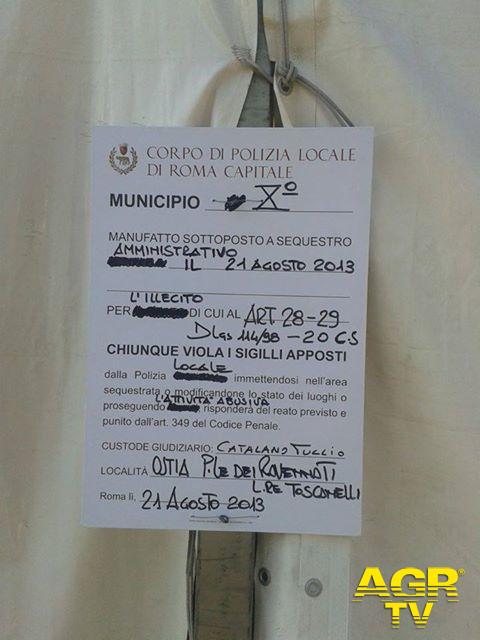 CORPO DI POLIZIA LOCALE
DI ROMA CAPITALE
MUNICIPIO X°
MANUFATTO SOTTOPOSTO A SEQUESTRO
AMMINISTRATIVO
IL 21 AGOSTO 2013
L'ILLECITO
PER DI CUI AL ART 28-29
DLgs 114/98 - 20 CS
CHIUNQUE VIOLA I SIGILLI APPOSTI
LOCALE
dalla Polizia immettendosi nell'area
sequestrata o modificandone lo stato dei luoghi o
L'ATTIVITÀ ABUSIVA
proseguendo risponderà del reato previsto e
punito dall'art. 349 del Codice Penale.
CUSTODE GIUDIZIARIO: CATALANO TULLIO
LOCALITÀ OSTIA P.le DEI RAVENNATI
L.RE TOSCANELLI
Roma lì, 21 AGOSTO 2013
AGR®
TV